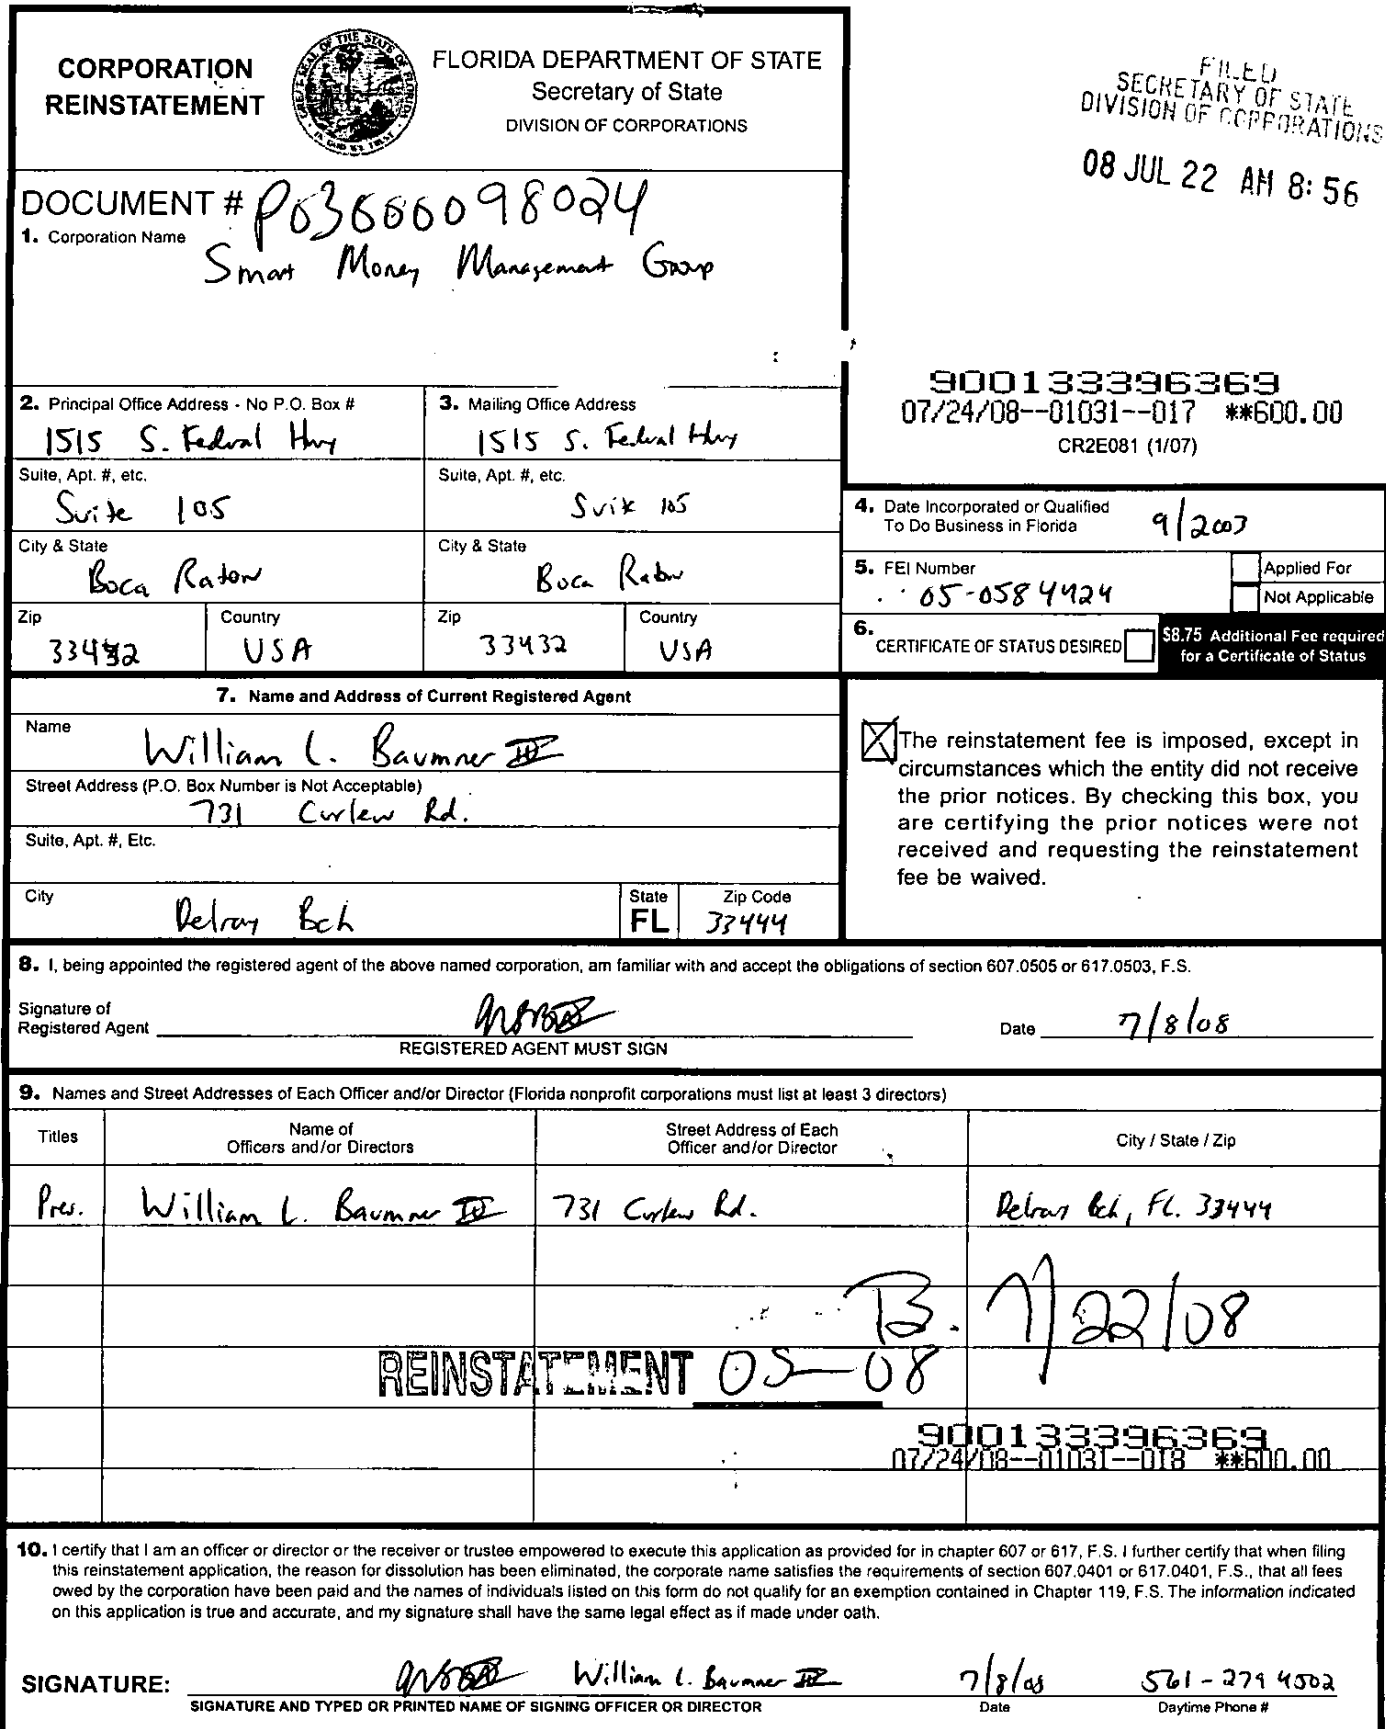 CORPORATION
REINSTATEMENT
FLORIDA DEPARTMENT OF STATE
Secretary of State
DIVISION OF CORPORATIONS
FILED
SECRETARY OF STATE
DIVISION OF CORPORATIONS
08 JUL 22 AM 8:56
DOCUMENT # P03000098024
1. Corporation Name
Smart Money Management Group
900133396369
07/24/08--01031--017 **600.00
CR2E081 (1/07)
2. Principal Office Address - No P.O. Box #
1515 S. Federal Hwy
3. Mailing Office Address
1515 S. Federal Hwy
Suite, Apt. #, etc.
Suite 105
Suite, Apt. #, etc.
Suite 105
City & State
Boca Raton
City & State
Boca Raton
Zip
33432
Country
USA
Zip
33432
Country
USA
4. Date Incorporated or Qualified
To Do Business in Florida
9/2003
5. FEI Number
05-0584424
Applied For
Not Applicable
6. CERTIFICATE OF STATUS DESIRED
$8.75 Additional Fee required
for a Certificate of Status
7. Name and Address of Current Registered Agent
Name
William L. Baumner III
Street Address (P.O. Box Number is Not Acceptable)
731 Curlew Rd.
Suite, Apt. #, Etc.
City
Delray Bch
State
FL
Zip Code
33444
The reinstatement fee is imposed, except in
circumstances which the entity did not receive
the prior notices. By checking this box, you
are certifying the prior notices were not
received and requesting the reinstatement
fee be waived.
8. I, being appointed the registered agent of the above named corporation, am familiar with and accept the obligations of section 607.0505 or 617.0503, F.S.
Signature of
Registered Agent
REGISTERED AGENT MUST SIGN
Date 7/8/08
9. Names and Street Addresses of Each Officer and/or Director (Florida nonprofit corporations must list at least 3 directors)
Titles
Name of
Officers and/or Directors
Street Address of Each
Officer and/or Director
City / State / Zip
Pres. William L. Baumner III 731 Curlew Rd. Delray Bch, FL. 33444
B. 7/22/08
REINSTATEMENT 05-08
900133396369
07/24/08--01031--018 **600.00
10. I certify that I am an officer or director or the receiver or trustee empowered to execute this application as provided for in chapter 607 or 617, F.S. I further certify that when filing
this reinstatement application, the reason for dissolution has been eliminated, the corporate name satisfies the requirements of section 607.0401 or 617.0401, F.S., that all fees
owed by the corporation have been paid and the names of individuals listed on this form do not qualify for an exemption contained in Chapter 119, F.S. The information indicated
on this application is true and accurate, and my signature shall have the same legal effect as if made under oath.
SIGNATURE: William L. Baumner III 7/8/08 561-279 4502
SIGNATURE AND TYPED OR PRINTED NAME OF SIGNING OFFICER OR DIRECTOR
Date
Daytime Phone #